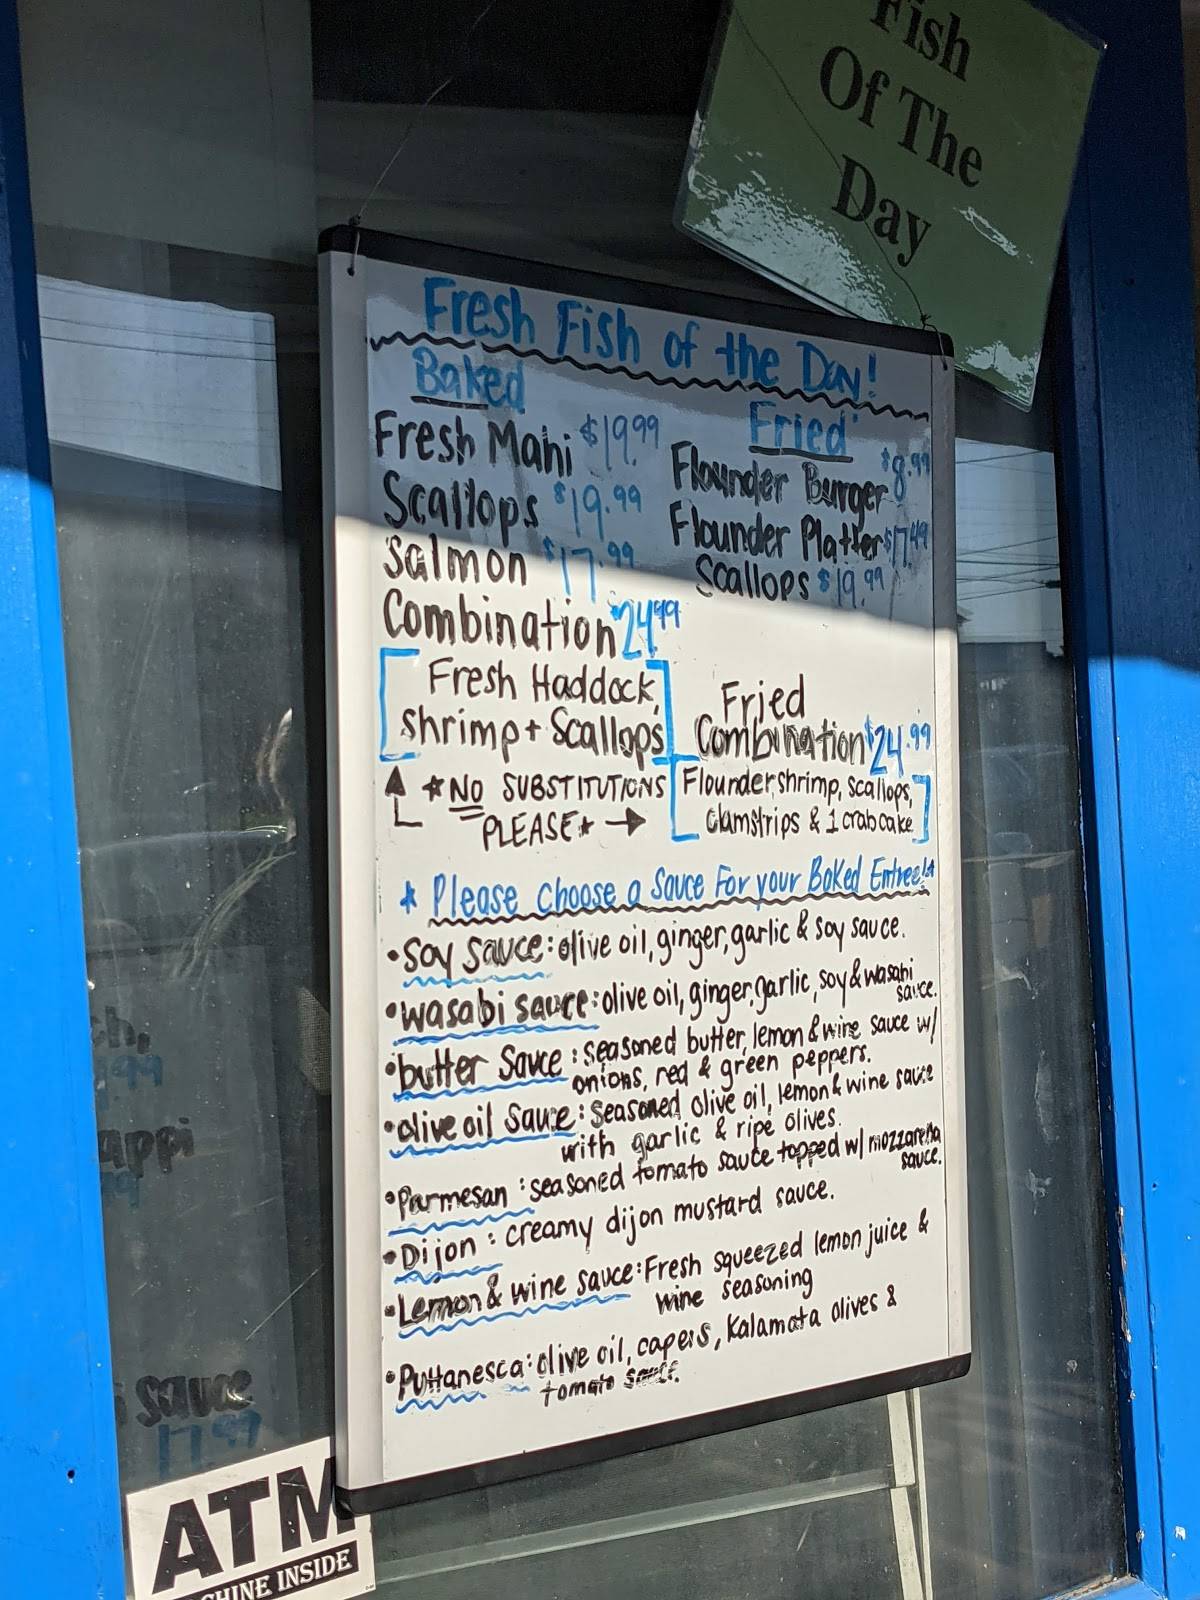 Fish
Of The
Day
Fresh Fish of the Day!
Baked
Fresh Mahi $19.99
Scallops $19.99
Salmon $17.99
Combination $24.99
[Fresh Haddock,
shrimp + Scallops]
*NO SUBSTITUTIONS
PLEASE* →
Fried
Flounder Burger $8.99
Flounder Platter $17.49
Scallops $19.99
Fried
Combination $24.99
[Flounder, shrimp, scallops,
clamstrips & 1 crabcake]
* Please choose a Sauce For your Baked Entree!*
•Soy sauce: olive oil, ginger, garlic & soy sauce.
•wasabi sauce: olive oil, ginger, garlic, soy & wasabi
sauce.
•butter Sauce: seasoned butter, lemon & wine sauce w/
onions, red & green peppers.
•olive oil sauce: seasoned olive oil, lemon & wine sauce
with garlic & ripe olives.
•Parmesan: seasoned tomato sauce topped w/ mozzarella
sauce.
•Dijon: creamy dijon mustard sauce.
•Lemon & wine sauce: Fresh squeezed lemon juice &
wine seasoning
•Puttanesca: olive oil, capers, Kalamata olives &
tomato sauce.
sauce
17.99
ATM
CHINE INSIDE